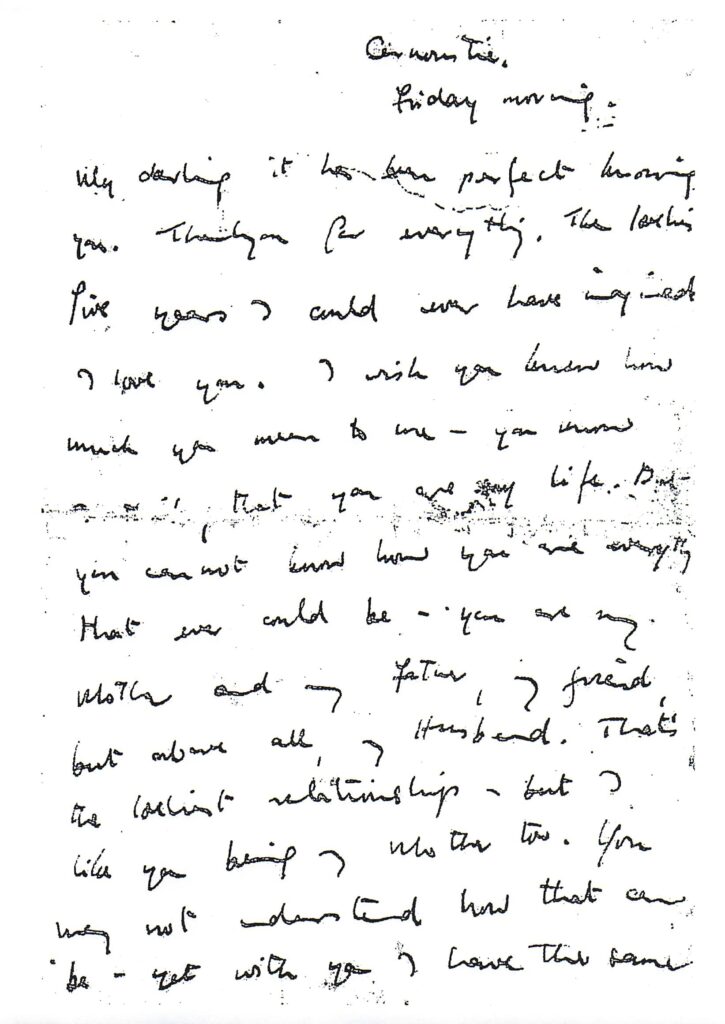 Carnoustie.
Friday morning.
My darling it has been perfect knowing
you. Thankyou for everything. The loveliest
five years I could ever have imagined
I love you. I wish you knew how
much you mean to me – you know
that you are my life. But
you cannot know how you are everything
that ever could be – you are my
Mother and my father, my friend,
but above all, my Husband. That's
the loveliest relationship – but I
like you being my Mother too. You
may not understand how that can
be – yet with you I have the same